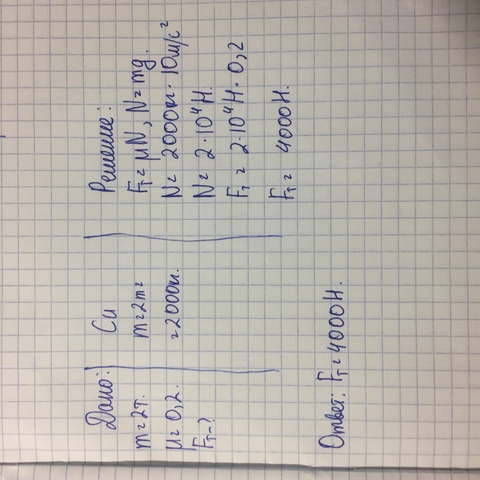 Дано:
m=2т.
μ=0,2.
Fт-?
Си
m=2т=
=2000кг.
Решение:
Fт=μN, N=mg.
N= 2000кг·10м/с²
N=2·10⁴Н.
Fт= 2·10⁴Н·0,2
Fт= 4000Н.
Ответ: Fт=4000Н.